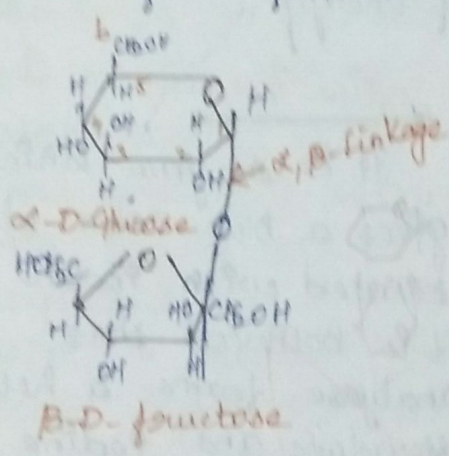 6
CH2OH
H H 5 O H
4 OH H
HO 3 2
H OH α, β-linkage
α-D-Glucose
O
HOH2C O
H H HO CH2OH
OH H
β-D-fructose